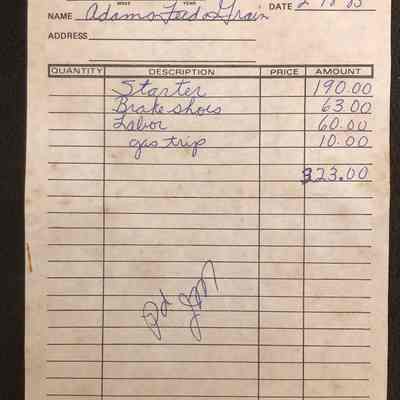 NAME Adams Feed & Grain DATE
ADDRESS
QUANTITY DESCRIPTION PRICE AMOUNT
Starter 190.00
Brake shoes 63.00
Labor 60.00
gas trip 10.00
323.00
Pd